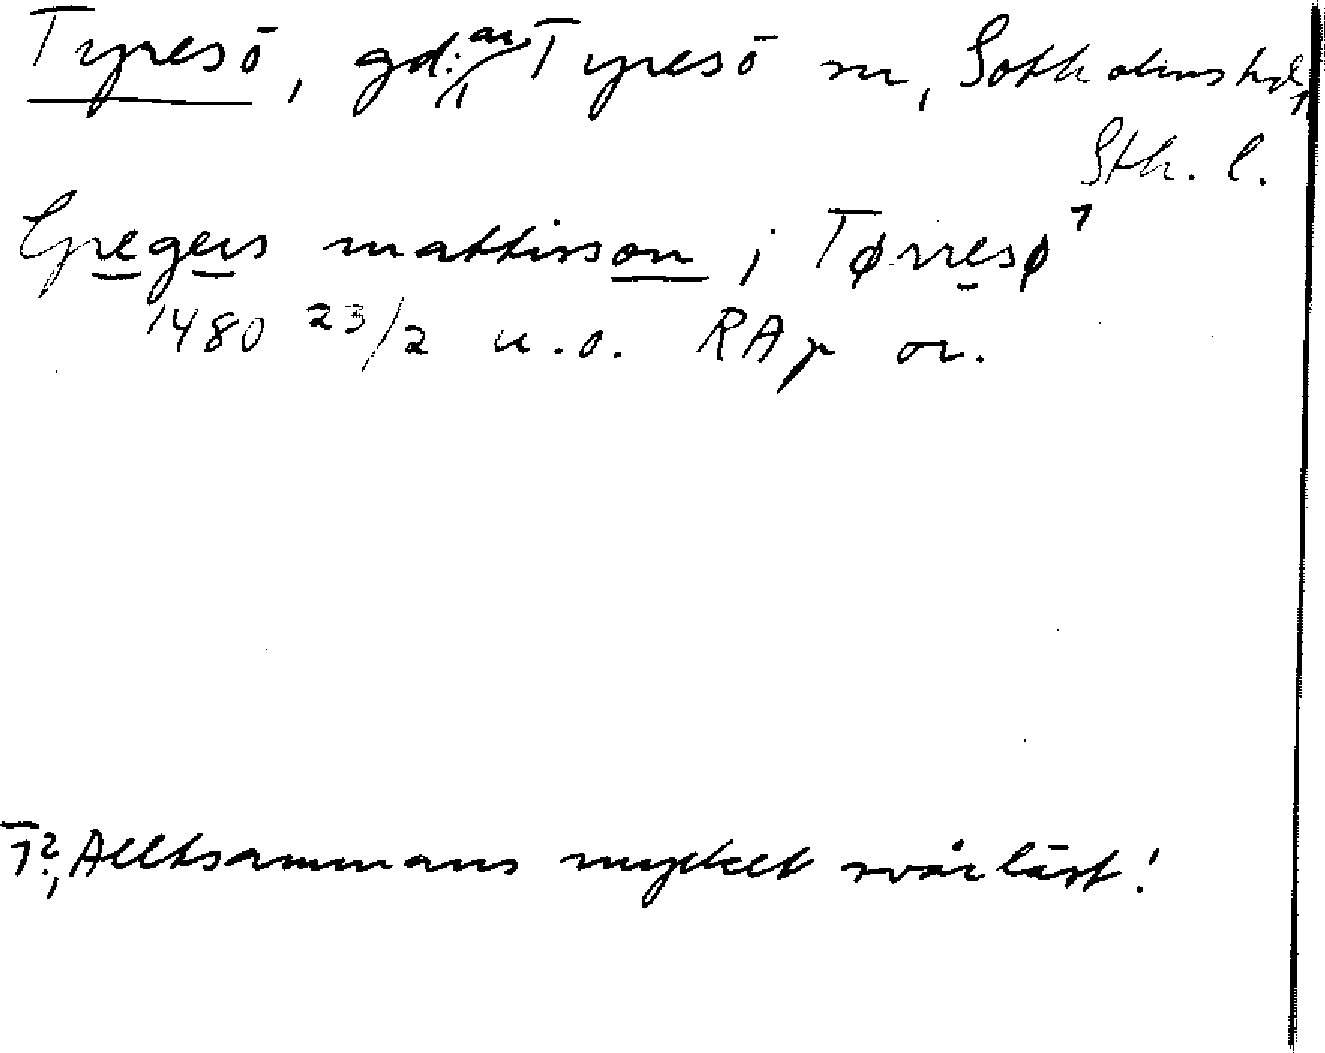 Tyresö, gd:ar Tyresö sn, Sotholms hd,
Sth. l.
Gregers mattisson j Tørresø¹
1480 23/2 u.o. RAp or.
1?, Alltsammans mycket svårläst!